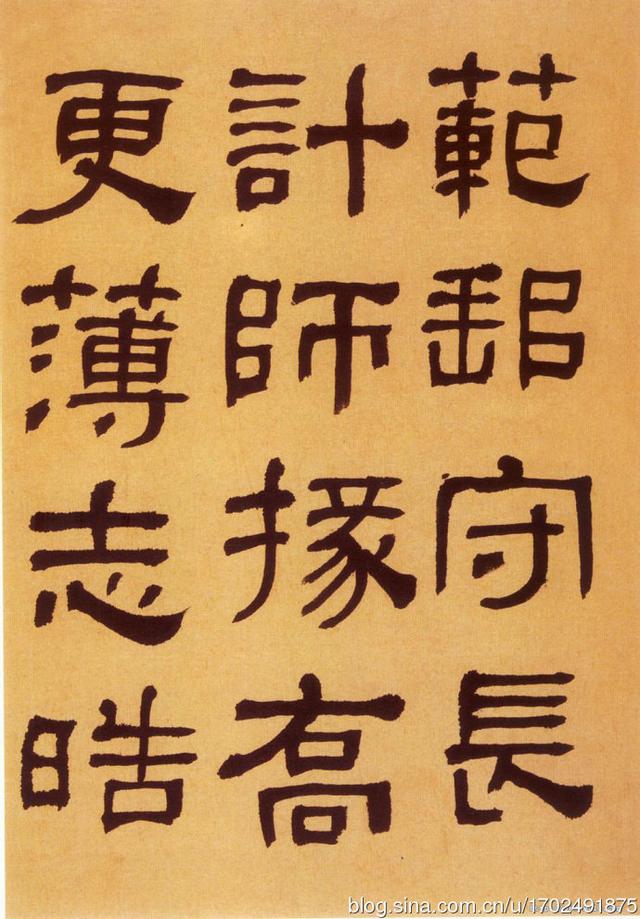 範郵守長
計師掾高
更薄志皓
blog.sina.com.cn/u/1702491875